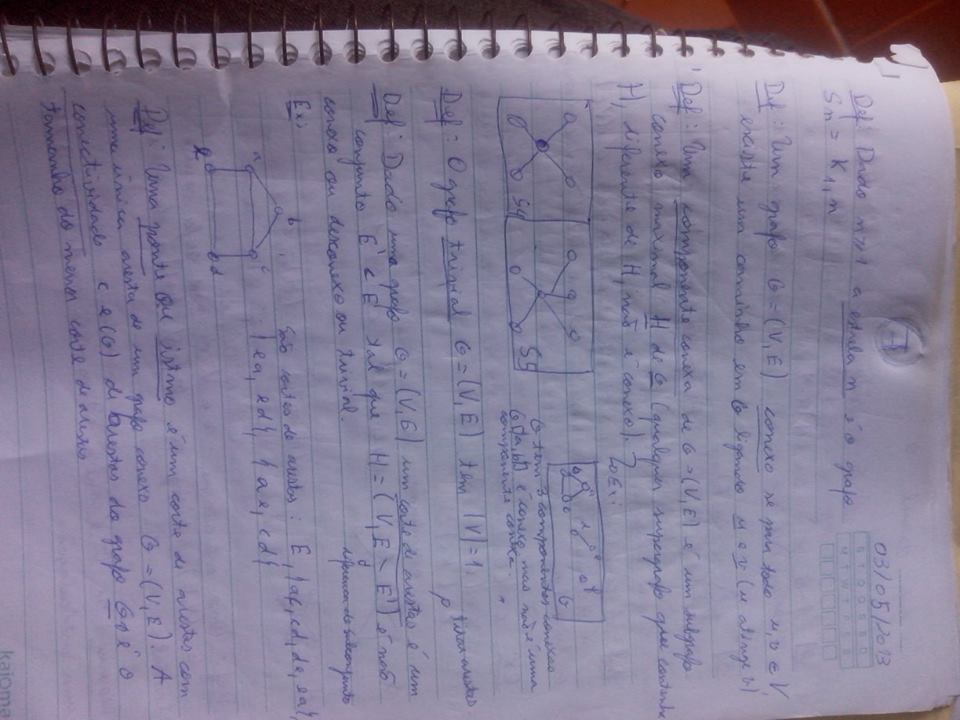 03/05/2013
Def: Dado n>1 a estrela n é o grafo
Sn = K1,n
Def: Um grafo G=(V,E) conexo se para todo u,v ∈ V,
existe um caminho em G ligando u e v (u atinge v)
Def: Uma componente conexa de G=(V,E) é um subgrafo
conexo maximal H de G (qualquer supergrafo que contenha
H, diferente de H, não é conexo). Ex:
G tem 3 componentes conexas
G[{a,b}] é conexo mas não é uma
componente conexa.
S4
S5
Def: O grafo trivial G=(V,E) tem |V|=1.
Def: Dado um grafo G=(V,E) um corte de arestas é um
conjunto E' ⊂ E tal que H=(V, E \ E') é não
diferença de subconjunto
conexo ou desconexo ou trivial.
Ex:
São cortes de arestas: E, {ac, cd, de, ea},
{ea, ed}, {ae, cd}
a
b
c
e
d
Def: Uma ponte ou istmo é um corte de arestas com
uma única aresta de um grafo conexo G=(V,E). A
conectividade e(G) de arestas do grafo G é o
tamanho do menor corte de arestas
kajoma